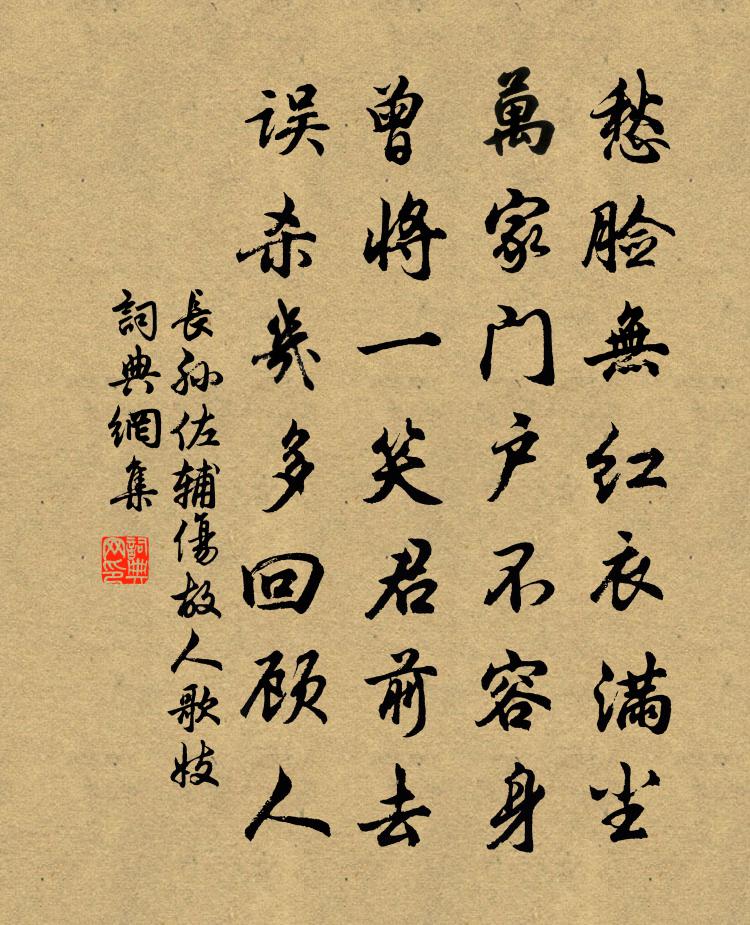 愁脸無红衣满尘
萬家门户不容身
曾將一笑君前去
误杀幾多回顾人
長孙佐辅傷故人歌妓
詞典網集
詞典
网印